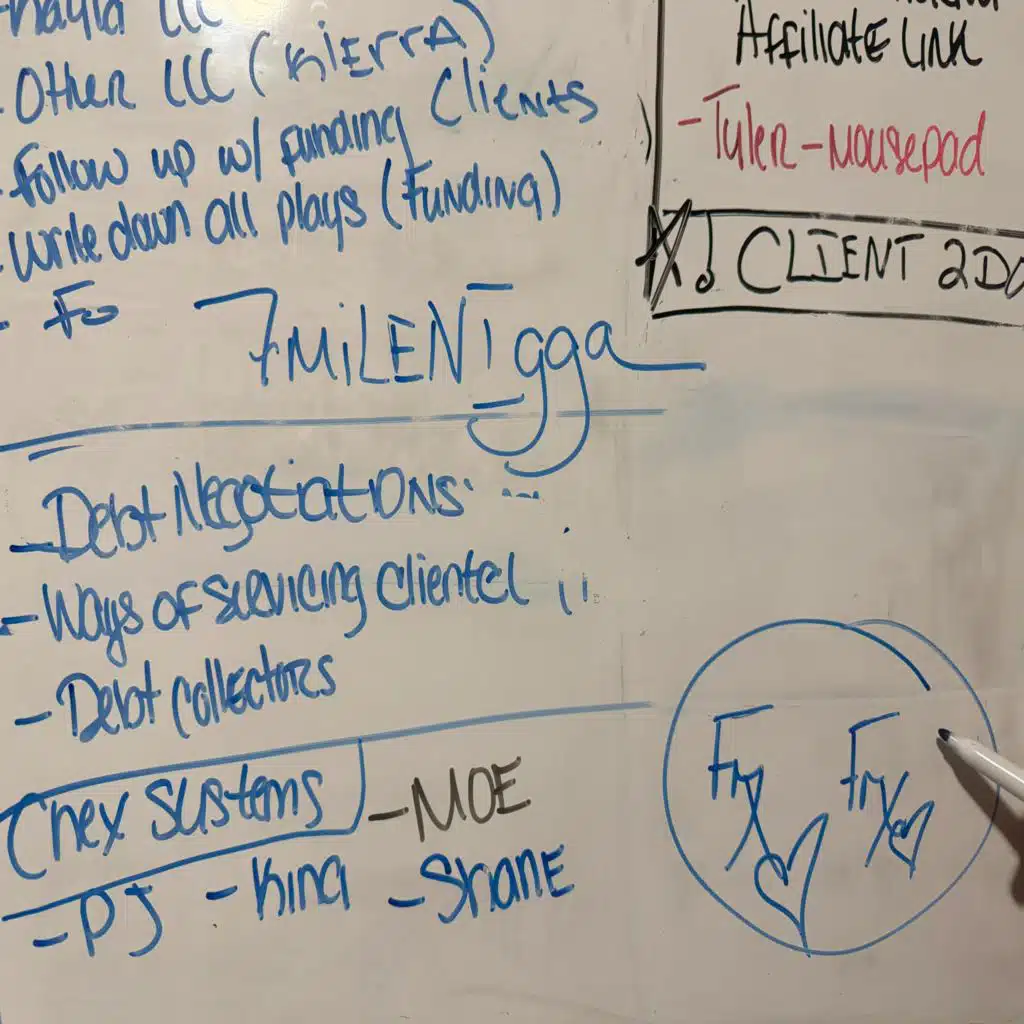 LLC
- Other LLC (KiErrA)
- Follow up w/ funding Clients
- Write down all plays (Funding)
- Fo
7MiLENIgga
- Debt Negotiations
- Ways of servicing clientel
- Debt collectors
Chex Systems - MOE
- PJ - King - Shane
Affiliate Link
- Tyler - mousepad
CLIENT 2DO
Fry Fry